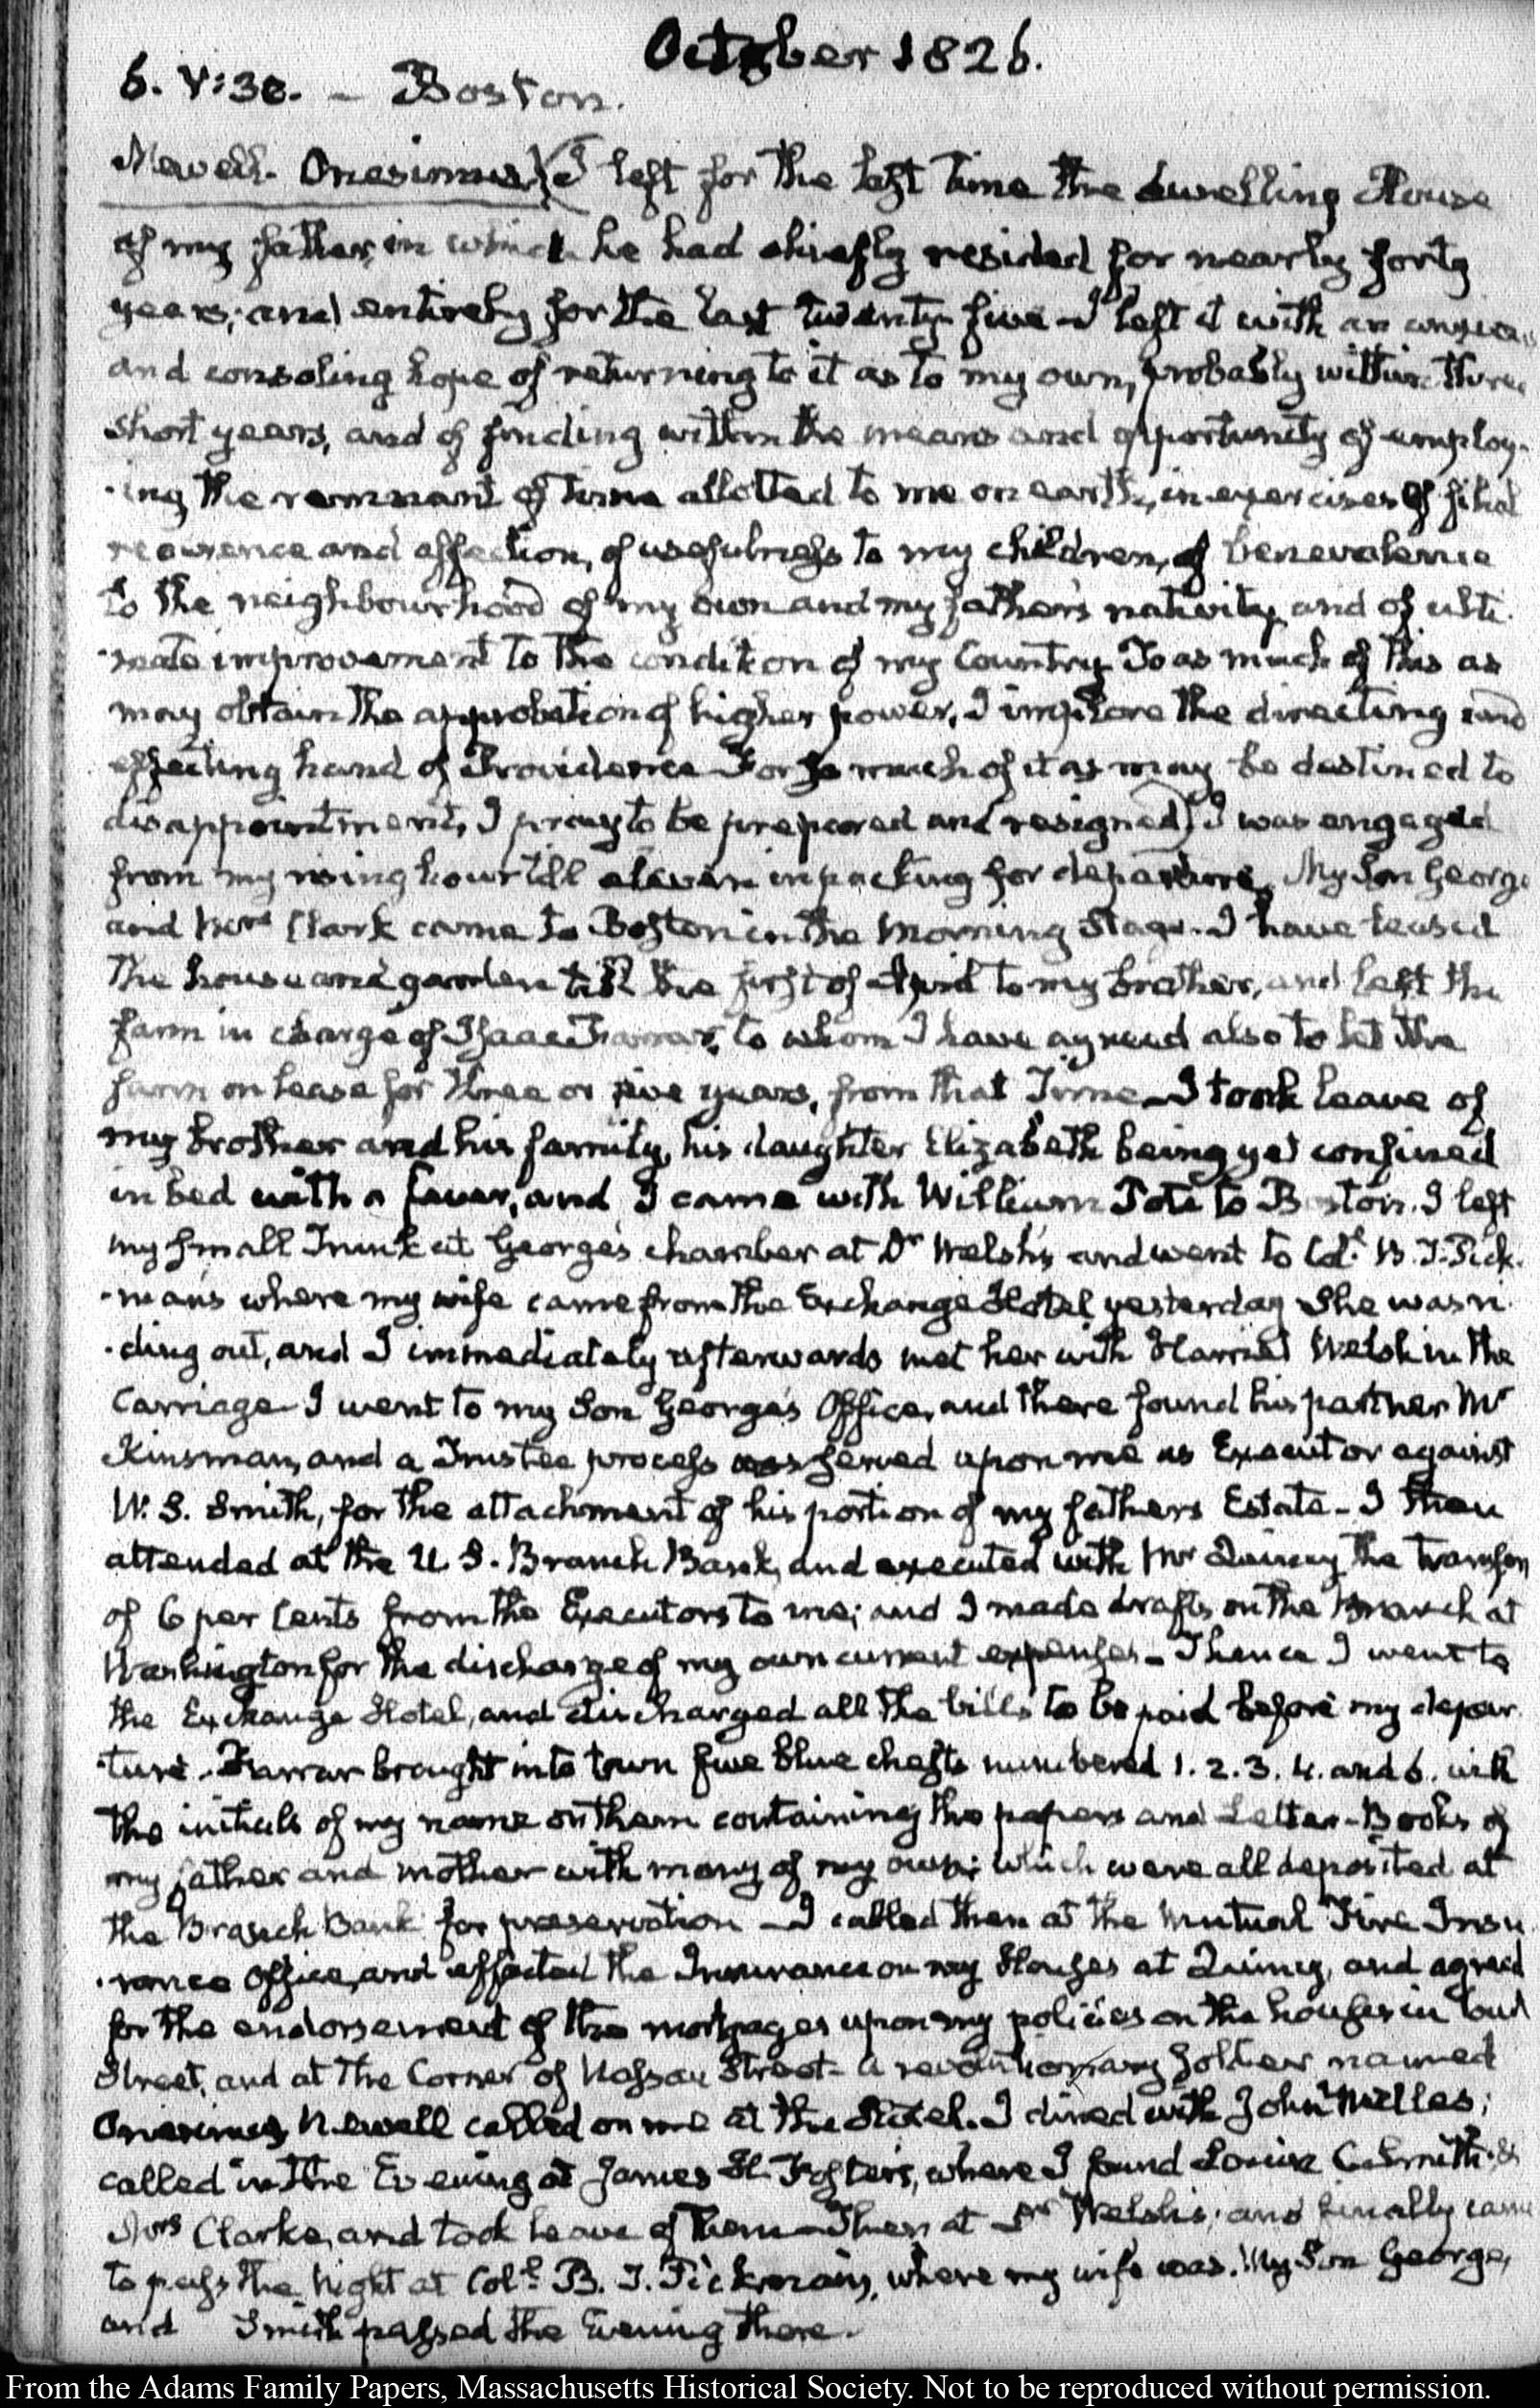 October 1826.
6. V:30. – Boston.
Newell. Onesimus) (I left for the last time the dwelling House
of my father, in which he had chiefly resided for nearly forty
years; and entirely for the last twenty five – I left it with an anxious
and consoling hope of returning to it as to my own, probably within three
short years, and of finding within the means and opportunity of employ-
-ing the remnant of time allotted to me on earth, in exercises of filial
reverence and affection, of usefulness to my children, of benevolence
to the neighbourhood of my own and my father's nativity, and of ulti-
-mate improvement to the condition of my Country. To as much of this as
may obtain the approbation of higher power, I implore the directing and
effecting hand of Providence – For so much of it as may be destined to
disappointment, I pray to be prepared and resigned) I was engaged
from my rising hour till eleven in packing for departure. My Son George
and Mrs Clark came to Boston in the Morning Stage. I have leased
the house and garden till the first of April to my brother, and left the
farm in charge of Isaac Farrar, to whom I have agreed also to let the
farm on lease for three or five years, from that Time – I took leave of
my brother and his family, his daughter Elizabeth being yet confined
in bed with a fever, and I came with William Pote to Boston. I left
my small Trunk at George's chamber at Dr Welsh's and went to Coll. B. T. Pick-
-man's where my wife came from the Exchange Hotel yesterday She was ri-
-ding out, and I immediately afterwards met her with Harriet Welsh in the
Carriage – I went to my Son George's Office, and there found his partner Mr
Kinsman, and a Trustee process was served upon me as Executor against
W. S. Smith, for the attachment of his portion of my fathers Estate – I then
attended at the U. S. Branch Bank, and executed with Mr Quincy the transfer
of 6 per Cents from the Executors to me; and I made drafts on the Branch at
Washington for the discharge of my own current expenses – Thence I went to
the Exchange Hotel, and discharged all the bills to be paid before my depar-
-ture. Farrar brought into town five blue chests numbered 1. 2. 3. 4. and 6. with
the initials of my name on them containing the papers and Letter-Books of
my father and mother with many of my own; which were all deposited at
the Branch Bank for preservation – I called then at the Mutual Fire Insu-
-rance Office, and effected the Insurance on my Houses at Quincy, and agreed
for the endorsement of the mortgages upon my policies on the houses in Court
Street, and at the Corner of Nassau Street – a revolutionary soldier named
Onesimus Newell called on me at the Hotel. I dined with John Welles;
called in the Evening at James H. Foster's, where I found Louisa C. Smith &
Mrs Clarke, and took leave of them – Then at Dr Welsh's; and finally came
to pass the Night at Coll. B. T. Pickman's, where my wife was. My Son George,
and Smith passed the Evening there.
From the Adams Family Papers, Massachusetts Historical Society. Not to be reproduced without permission.